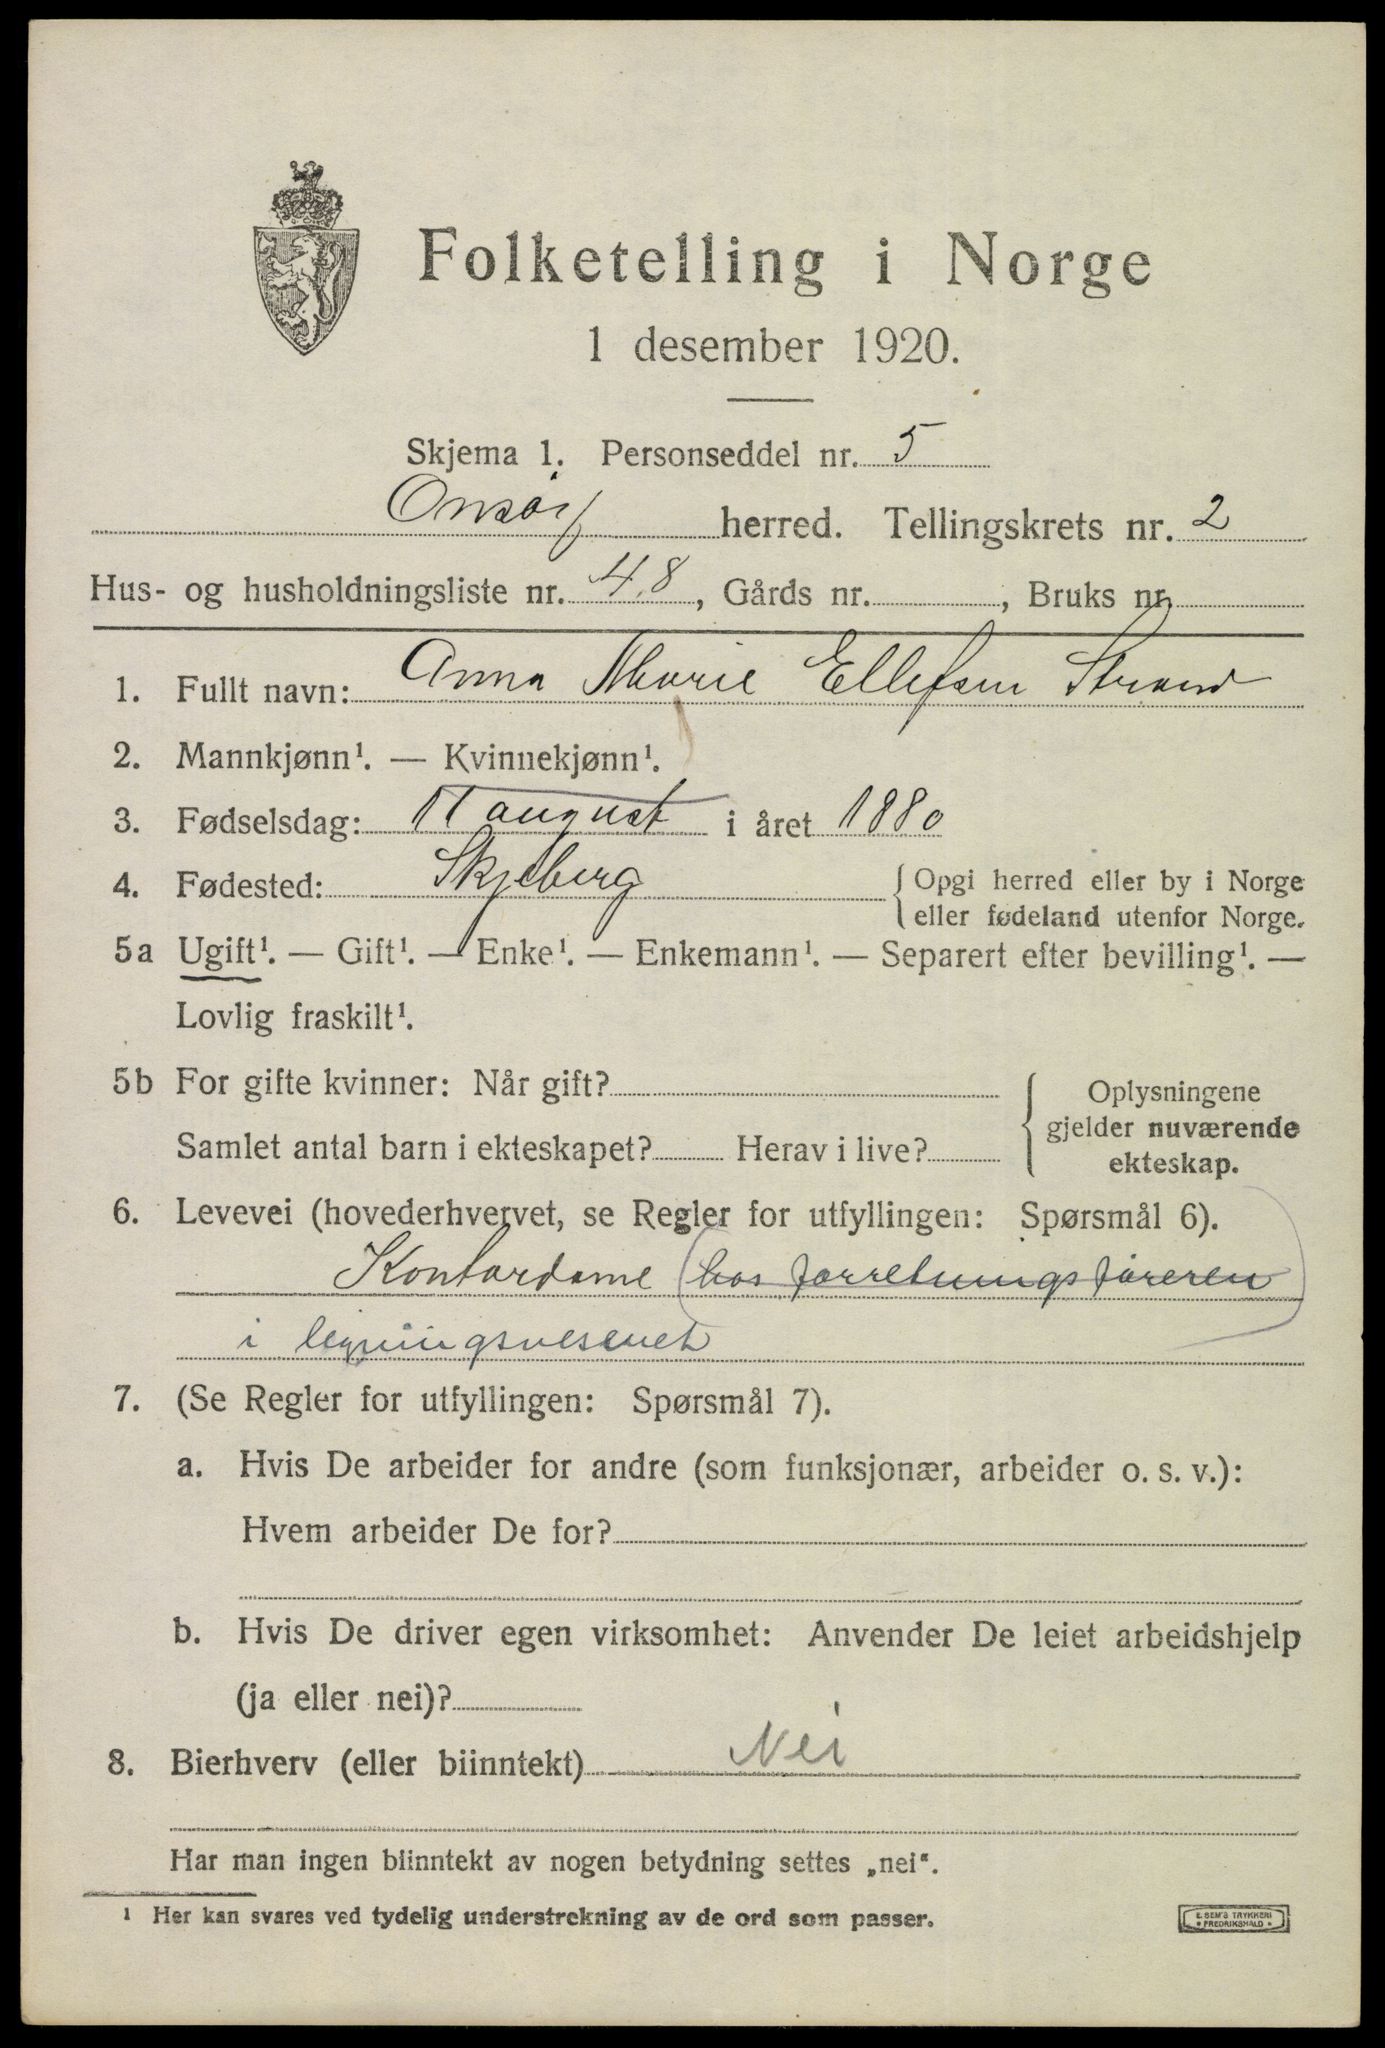 Folketelling i Norge
1 desember 1920.
Skjema 1. Personseddel nr. 5
Onsøy herred. Tellingskrets nr. 2
Hus- og husholdningsliste nr. 48, Gårds nr. , Bruks nr.
1. Fullt navn: Anna Marie Ellefsen Strand
2. Mannkjønn¹. — Kvinnekjønn¹.
3. Fødselsdag: 11 august i året 1880
4. Fødested: Skjeberg { Opgi herred eller by i Norge
eller fødeland utenfor Norge.
5a Ugift¹. — Gift¹. — Enke¹. — Enkemann¹. — Separert efter bevilling¹. —
Lovlig fraskilt¹.
5b For gifte kvinner: Når gift?
Samlet antal barn i ekteskapet? Herav i live?
Oplysningene
gjelder nuværende
ekteskap.
6. Levevei (hovederhvervet, se Regler for utfyllingen: Spørsmål 6).
Kontordame (hos forretningsføreren)
i ligningsvesenet
7. (Se Regler for utfyllingen: Spørsmål 7).
a. Hvis De arbeider for andre (som funksjonær, arbeider o. s. v.):
Hvem arbeider De for?
b. Hvis De driver egen virksomhet: Anvender De leiet arbeidshjelp
(ja eller nei)?
8. Bierhverv (eller biinntekt) Nei
Har man ingen biinntekt av nogen betydning settes „nei“.
¹ Her kan svares ved tydelig understrekning av de ord som passer.
E. SEM'S TRYKKERI
FREDRIKSHALD